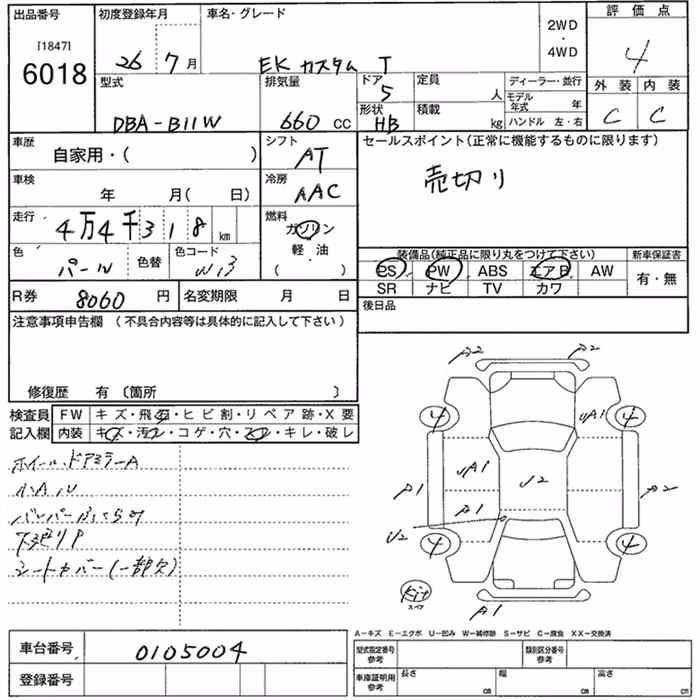 出品番号
[1847]
6018
初度登録年月
26 7月
車名・グレード
EK カスタム T
2WD
・
4WD
評価点
4
外装 内装
C C
型式
DBA-B11W
排気量
660 CC
ドア
5
形状
HB
定員
人
積載
kg
ディーラー・並行
モデル年式 年
ハンドル 左・右
車歴
自家用・( )
シフト
AT
セールスポイント(正常に機能するものに限ります)
売切り
車検
年 月( 日)
冷房
AAC
走行
4万4千318 km
燃料
ガソリン
軽・油
( )
色
パール
色替
色コード
W13
装備品(純正品に限り丸をつけて下さい)
新車保証書
PS PW ABS エアB AW
SR ナビ TV カワ
有・無
R券 8060 円
名変期限 月 日
後日品
注意事項申告欄 (不具合内容等は具体的に記入して下さい)
修復歴 有 〔箇所 〕
検査員
記入欄
FW キズ・飛石・ヒビ割・リペア跡・X要
内装 キズ・汚レ・コゲ・穴・スレ・キレ・破レ
ホイール、ドアミラーA
小A、U
バンパーふくらみ
下廻りP
シートカバー(一部欠)
P2 P2
4 4
UA1
UA1 U2
P1 P2
P1
U2
4 4
Kit
スペア
A1
A-キズ E-エクボ U-凹み W-補修跡 S-サビ C-腐食 XX-交換済
車台番号
0105004
登録番号
型式指定番号
参考
類別区分番号
参考
車庫証明用
参考
長さ cm
幅 cm
高さ cm